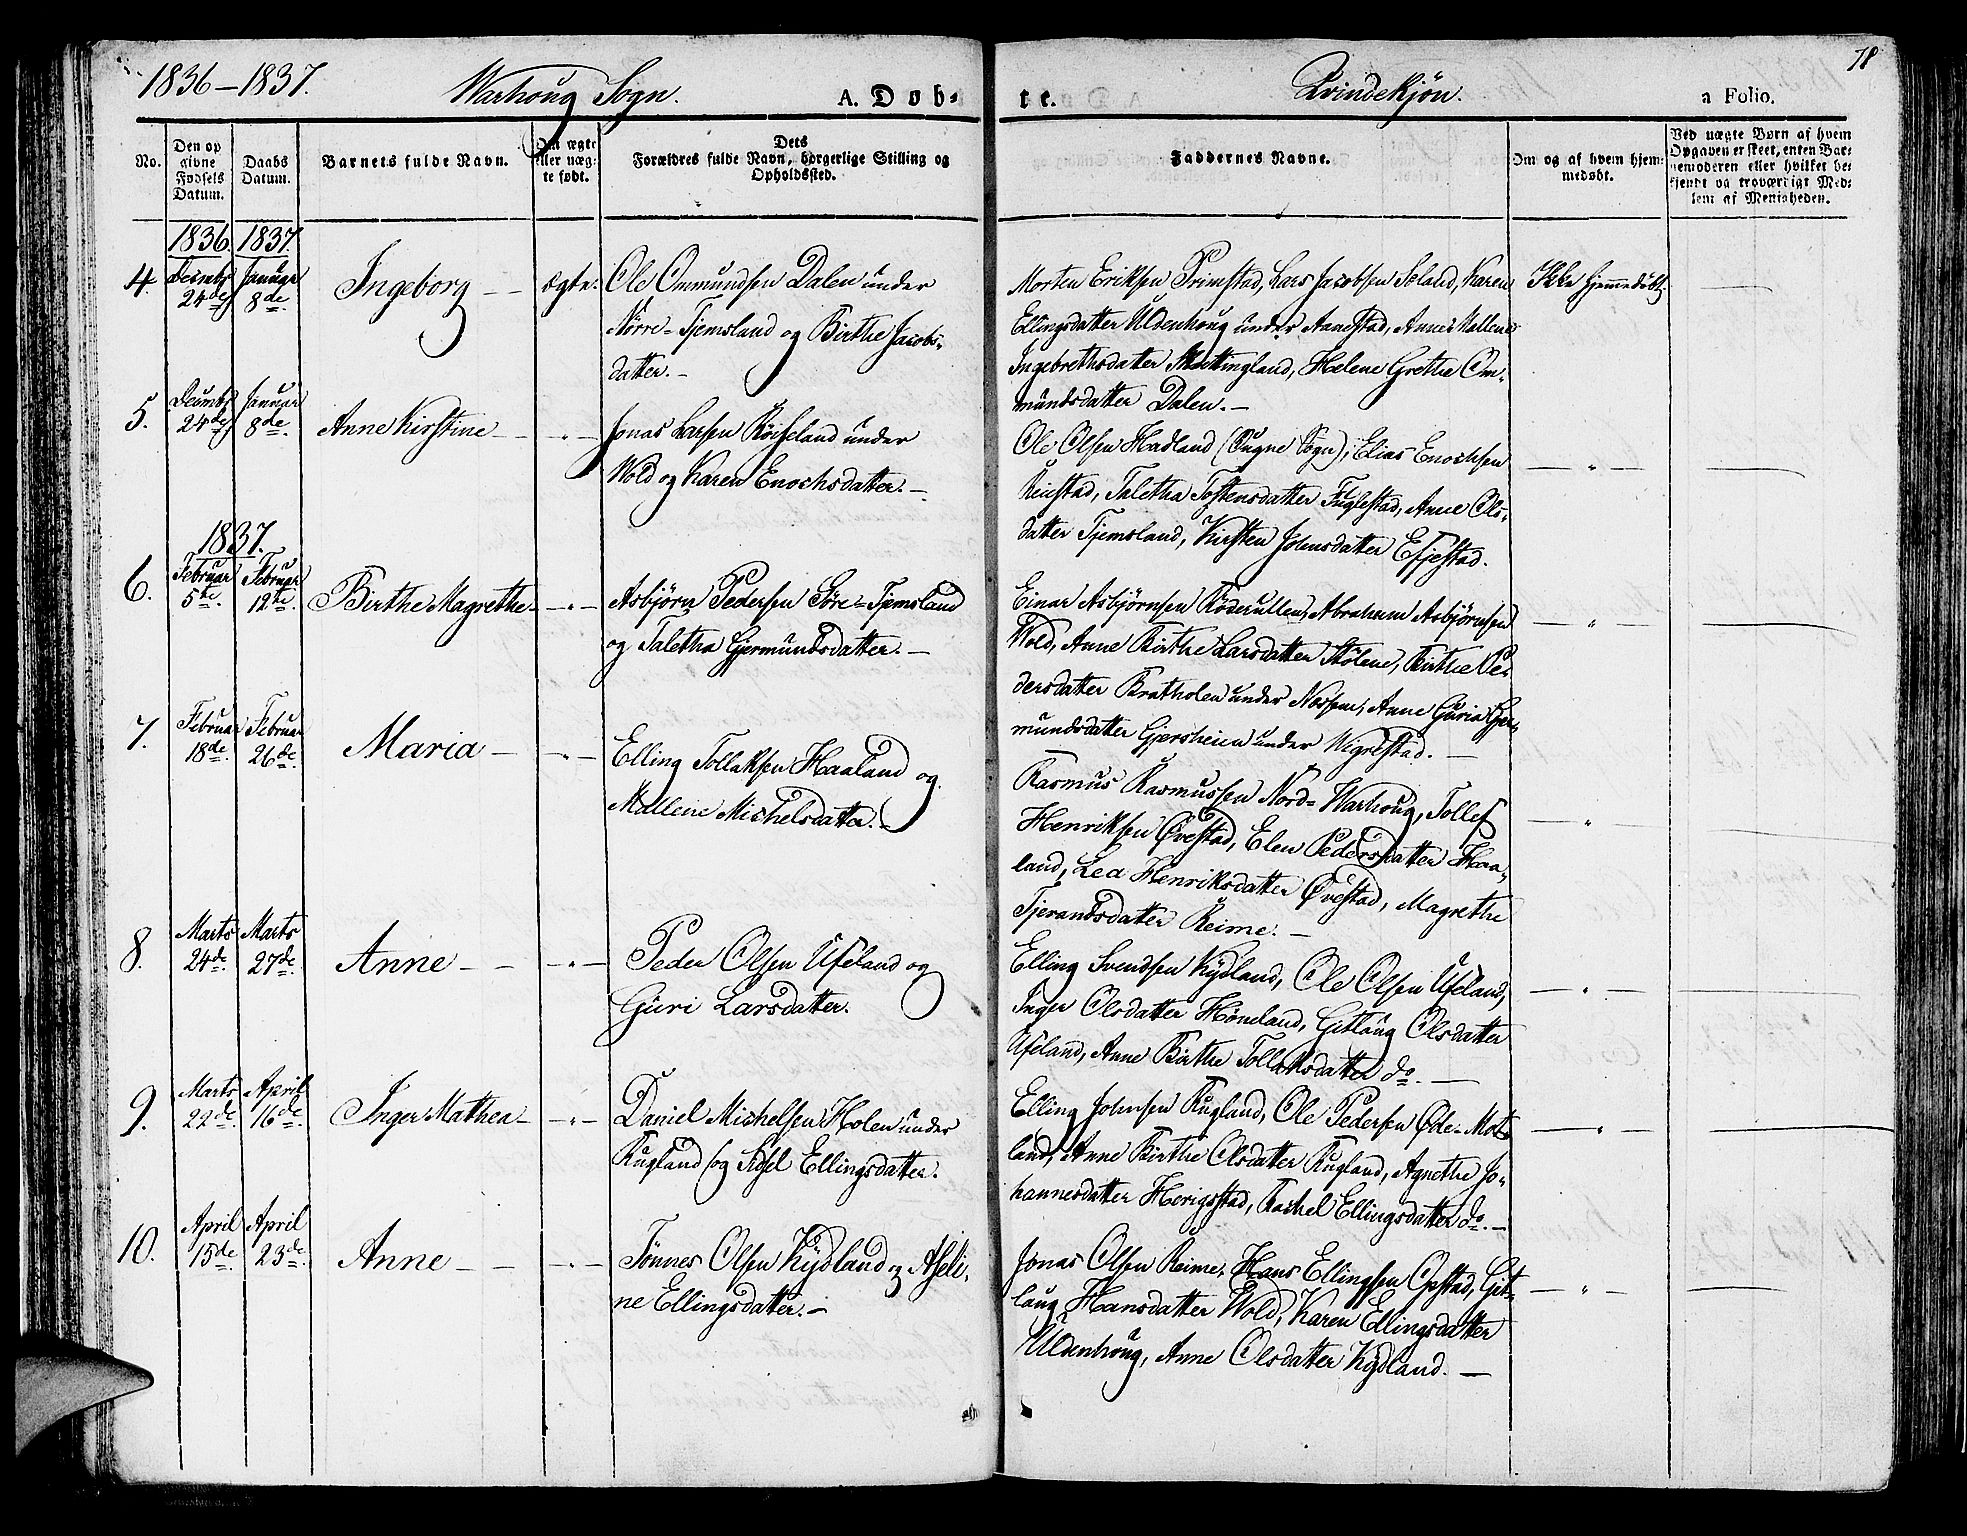 1836–1837. Warhoug Sogn. A. Døb- te. Qvindekjön. a Folio. 78
No.
Den op
givne
Fødsels
Datum.
Daabs
Datum.
Barnets fulde Navn.
Om ægte
eller uæg-
te født.
Dets
Forældres fulde Navn, borgerlige Stilling og
Opholdssted.
Faddernes Navne.
Om og af hvem hjem-
medøbt.
Ved uægte Børn af hvem
Opgaven er skeet, enten Bar-
nemoderen eller hvilket be-
kjendt og troværdigt Med-
lem af Menigheden.
1836. 1837.
4. Decmbr 24de Januar 8de. Ingeborg – – ægte.
Ole Ommundsen Dalen under
Nörre-Tjemsland og Birthe Jacobs-
datter. –
Morten Eriksen Primstad, Lars Jacobsen Söland, Karen
Ellingsdatter Uldenhoug under Aanestad, Anne Mallene
Ingebrethsdatter Mottingland, Helene Grethe Om-
mundsdatter Dalen. –
Ikke hjemmedöbt. —
5. Decmbr 24de Januar 8de. Anne Kirstine – – " –
Jonas Larsen Röiseland under
Wold og Karen Enochsdatter. –
Ole Olsen Hadland (Ougne Sogn), Elias Enochsen
Reiestad, Taletha Tostensdatter Fuglestad, Anne Ols-
datter Tjemsland, Kirsten Johnsdatter Efjestad.
— " — —
1837.
6. Februar 5te. Februar 12te. Birthe Magrethe – – " –
Asbjörn Pedersen Söre-Tjemsland
og Taletha Gjermundsdatter. –
Einar Asbjörnsen Röderullen, Abraham Asbjörnsen
Wold, Anne Birthe Larsdatter Stölene, Birthe Pe-
dersdatter Bratholen under Nossem, Anne Guria Gjer-
mundsdatter Gjersheien under Wigrestad. –
— " — —
7. Februar 18de. Februar 26de. Maria – – " –
Elling Tollaksen Haaland og
Mallene Michelsdatter. –
Rasmus Rasmussen Nord-Warhoug, Tollef
Henriksen Øvestad, Elen Pedersdatter Haa-
land, Lea Henriksdatter Øvestad, Magrethe
Tjerandsdatter Reime. –
— " — —
8. Marts 24de. Marts 27de. Anne – – – " –
Peder Olsen Ufeland og
Guri Larsdatter.
Elling Svendsen Kydland, Ole Olsen Ufeland,
Inger Olsdatter Höneland, Gitlaug Olsdatter
Ufeland, Anne Birthe Tollaksdatter do. –
— " — —
9. Marts 22de. April 16de. Inger Mathea – – " –
Daniel Michelsen Holen under
Rugland og Sidsel Ellingsdatter.
Elling Johnsen Rugland, Ole Pedersen Øde-Mot-
land, Anne Birthe Olsdatter Rugland, Agnethe Jo-
hannesdatter Herigsstad, Rachel Ellingsdatter do. –
— " — —
10. April 15de. April 23de. Anne – – – " –
Tönnes Olsen Kydland og Aseli-
ne Ellingsdatter. –
Jonas Olsen Reime, Hans Ellingsen Opstad, Git-
laug Hansdatter Wold, Karen Ellingsdatter
Uldenhoug, Anne Olsdatter Kydland. –
— " — —